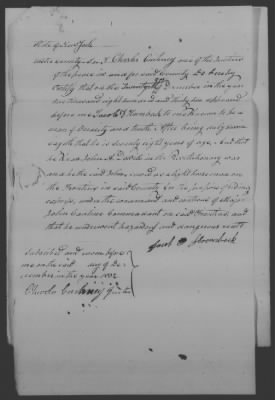 State of New York
County ss. I, Charles Cushney one of the Justices
of the peace in and for said County Do hereby
Certify that on the Twenty December in the year
one thousand eight hundred and thirty two appeared
before me Jacob D Hornbeck to me Known to be a
man of Veracity and truth. After being duly sworn
sayeth that he is seventy eight years of age, And that
he Knew John A. DeWitt in the Revolutionary war
and he the said John, served as a light horse man on
the Frontiers in said County for the purpose of riding
express, under the command and controul of Major
John Cantine Commandant on said Frontiers, and
that he underwent hazardous and dangerous routs
Jacob D Hornbeck
Subscribed and sworn before
me on the said day of De-
cember in the year 1832
Charles Cushney Justice